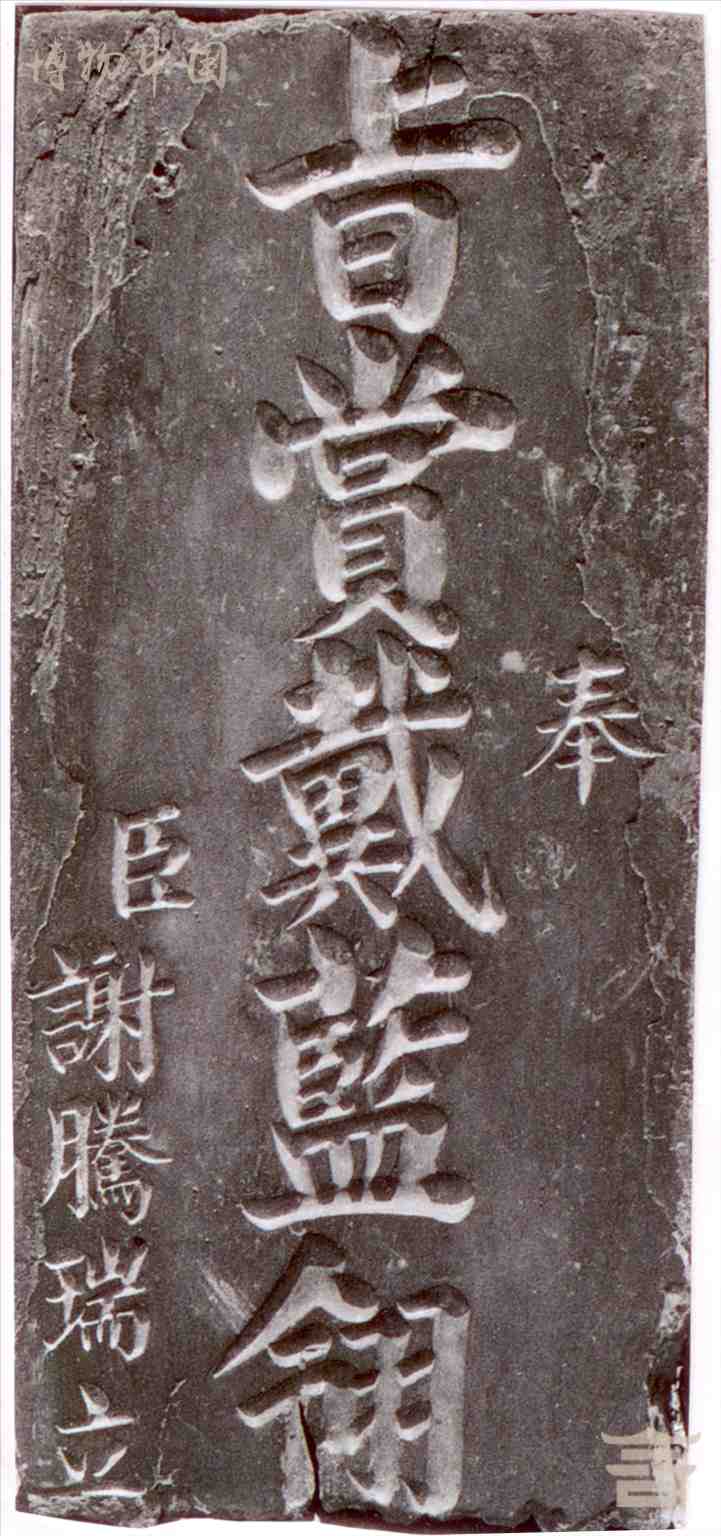 奉
旨賞戴藍翎
臣謝騰瑞立
博物中国